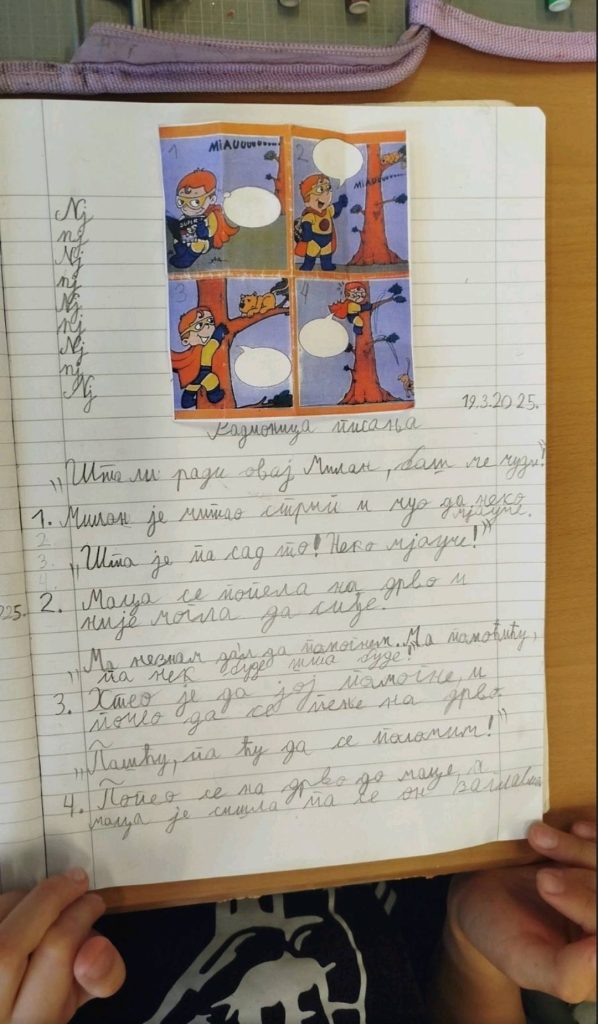 MIAUUUUUU.....
MIAUUUUU.....
1
2
3
4
SUPER
Nj
nj
Nj
nj
Nj
nj
Nj
nj
Nj
19.3.2025.
Радионица писања
„Шта ли ради овај Милан, баш ме чуди!"
1. Милан је читао стрип и чуо да неко
мјауче.
2
3.
4.
„Шта је па сад то! Неко мјауче!"
025.
2. Маца се попела на дрво и
није могла да сиђе.
„Ма незнам дал да помогнем. Ма помоћићу,
па нек буде шта буде!"
3. Хтео је да јој помогне, и
почео да се пење на дрво.
„Пашћу, па ћу да се поломим!"
4. Попео се на дрво до маце, а
маца је сишла па се он заглавио